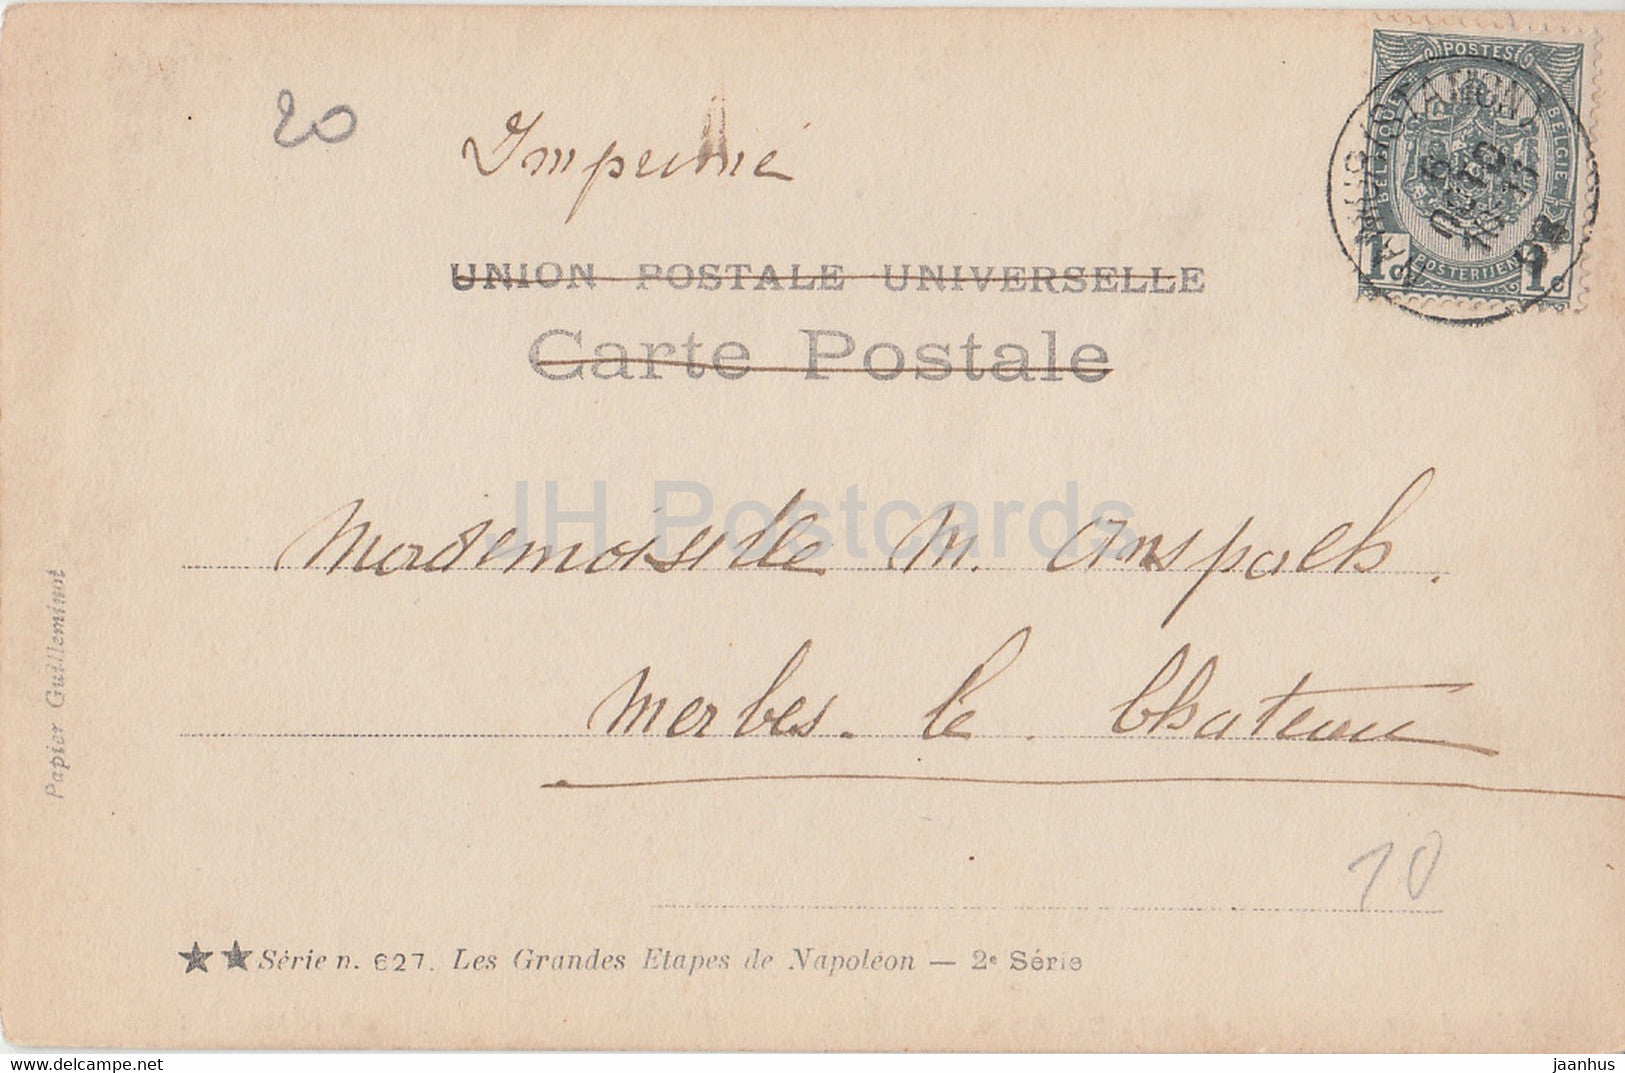 20
Imprimé
POSTES
BELGIQUE
BELGIE
POSTERIJEN
1c 1c
NAMUR (STATION)
6
10-11
UNION POSTALE UNIVERSELLE
Carte Postale
JH Postcards
Mademoiselle M. Anspach.
Merbes-le-Chateau
Papier Guilleminot
10
★★ Série n. 627. Les Grandes Etapes de Napoléon — 2e Série
delcampe.net
jaanhus